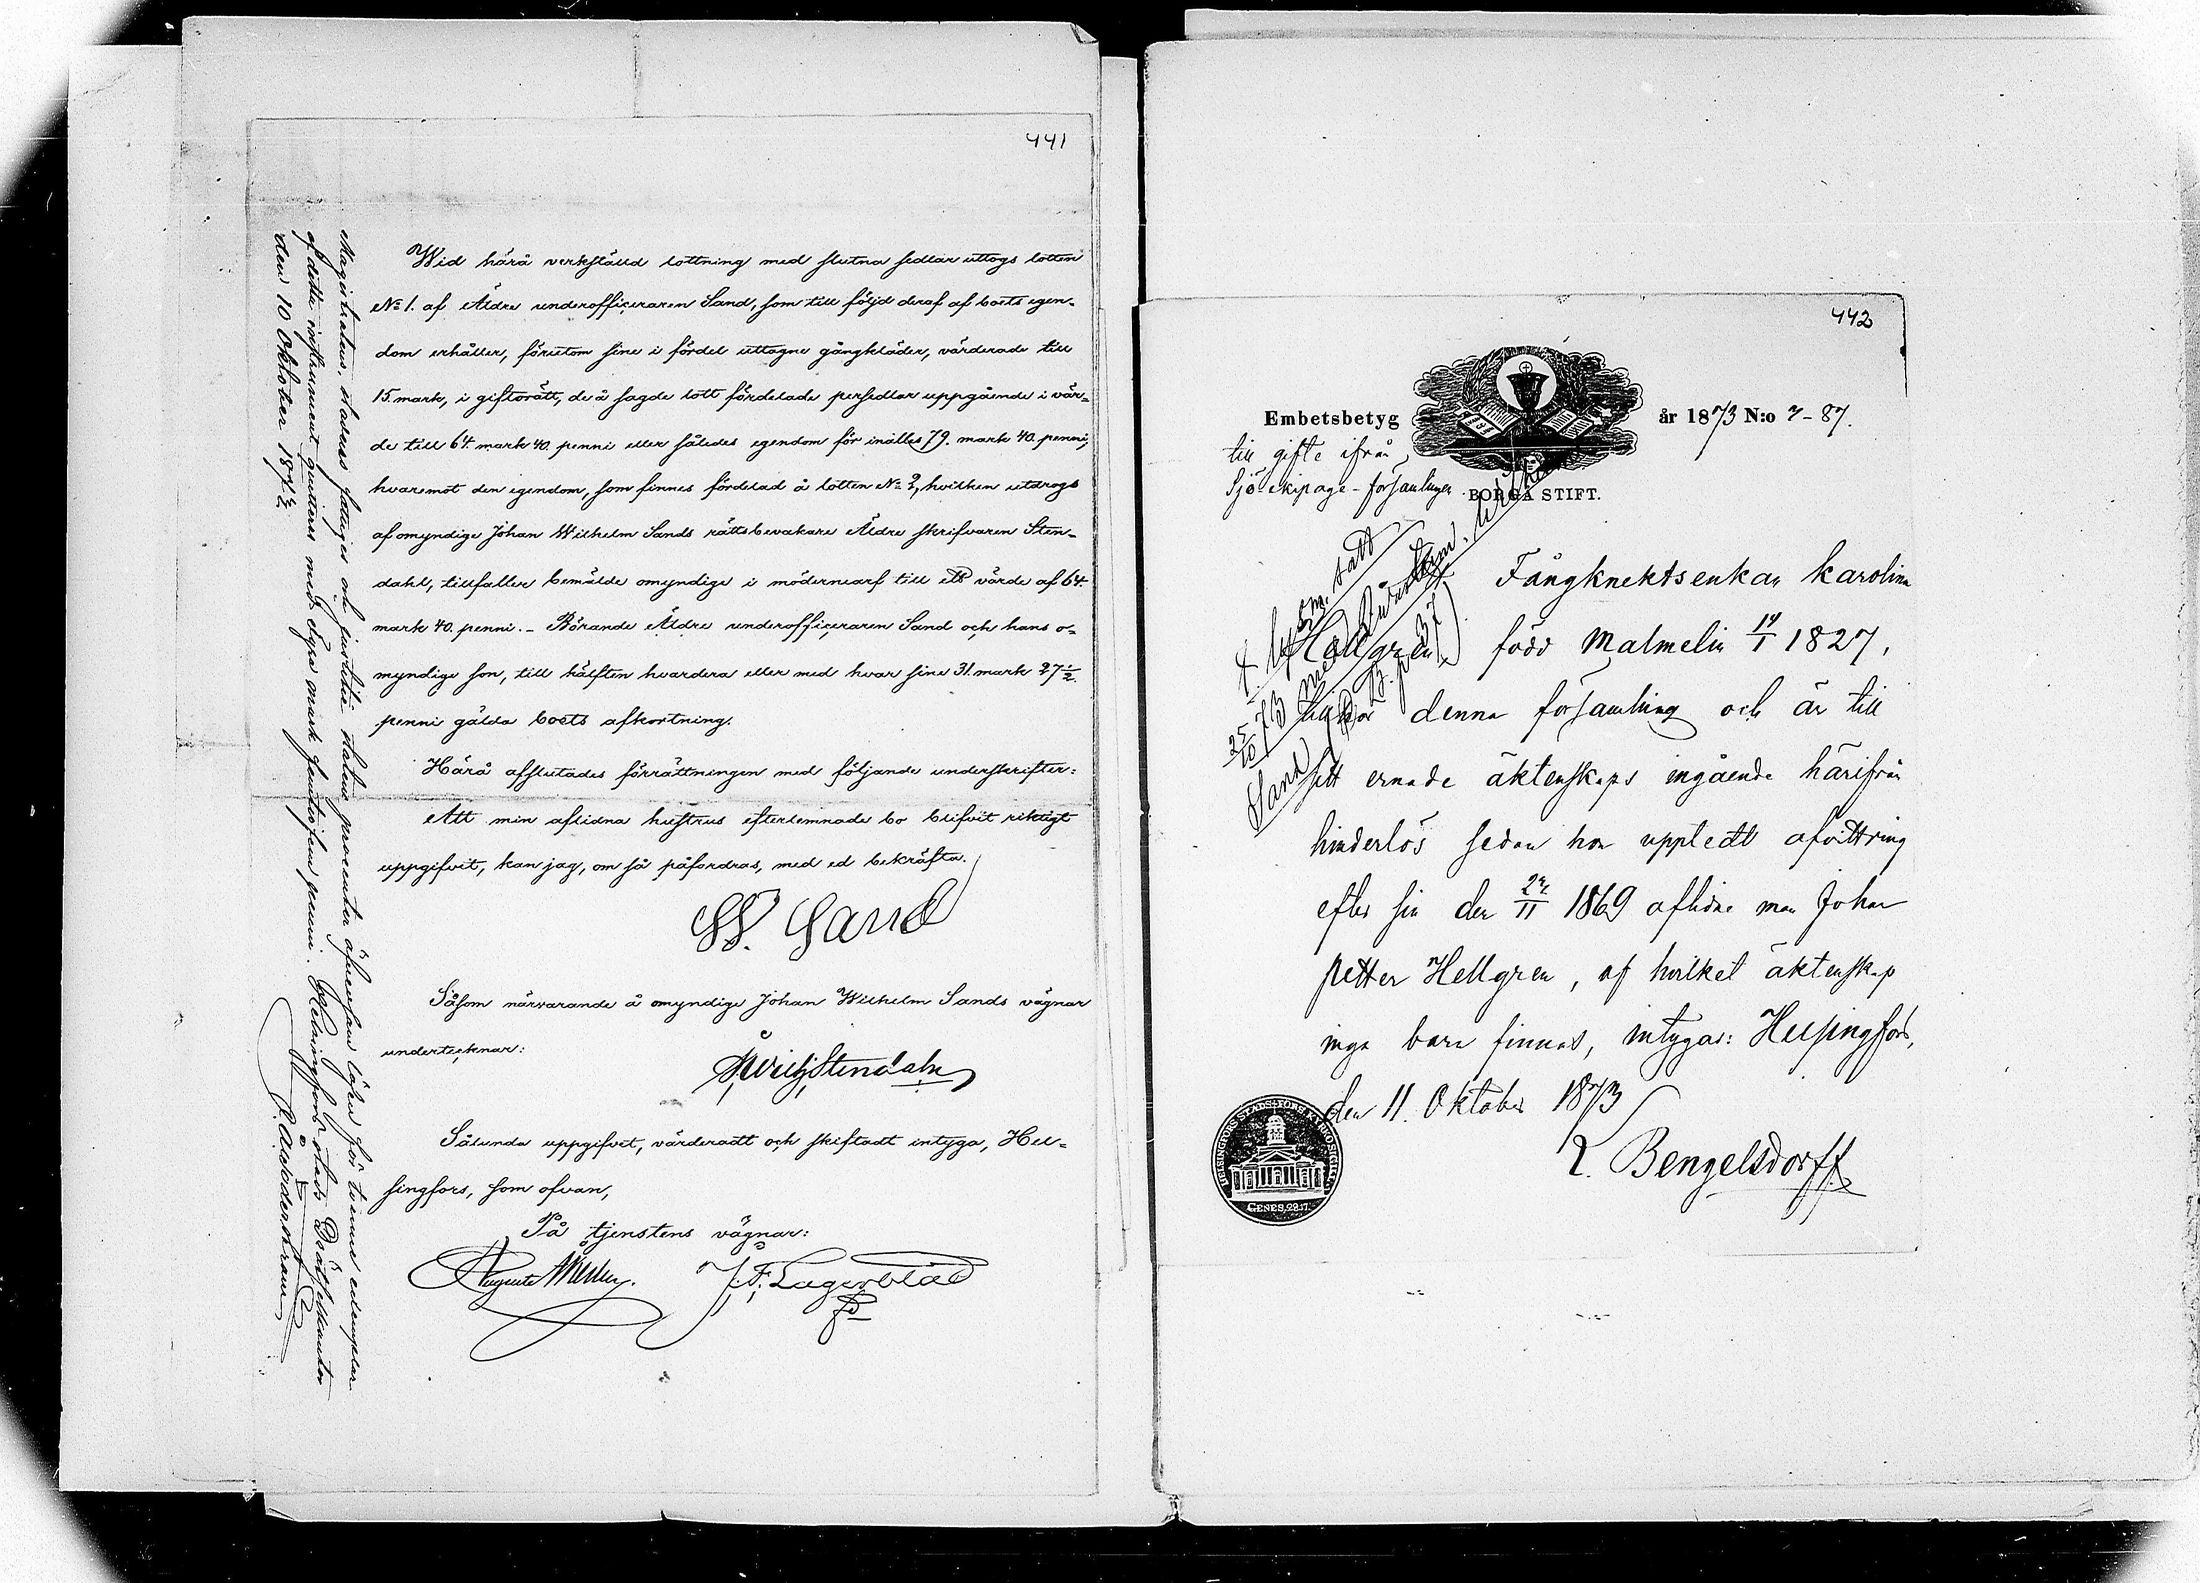 441
Wid härå verkställd lottning med slutna sedlar uttogs lotten
No 1. af Äldre underofficeraren Sand, som till följd deraf af boets egen-
dom erhåller, förutom sine i fördel uttagne gångkläder, värderade till
15. mark, i giftorätt, de å sagde lott fördelade persedlar uppgående i vär-
de till 64. mark 40. penni eller således egendom för inalles 79. mark 40. penni,
hvaremot den egendom, som finnes fördelad å lotten No 2, hvilken utdrogs
af omyndige Johan Wilhelm Sands rättsbevakare Äldre skrifvaren Sten-
dahl, tillfaller bemälde omyndige i mödernearf till ett värde af 64.
mark 40. penni. - Börande Äldre underofficeraren Sand och hans o-
myndige son, till hälften hvardera eller med hvar sine 31. mark 27 1/2.
penni gälda boets afkortning.
Härå afslutades förrättningen med följande underskrifter:
Att min aflidna hustrus efterlemnade bo blifvit riktigt
uppgifvit, kan jag, om så påfordras, med ed bekräfta.
W. Sand
Såsom närvarande å omyndige Johan Wilhelm Sands vägnar
undertecknar:
Stendahl
Sålunda uppgifvet, värderadt och skiftadt intyga, Hel-
singfors, som ofvan,
På tjenstens vägnar:
J. F. Lagerblad
Magistratens, stadens fattiges och justitie statens procenter äfvensom lösen för tvenne exemplar
af detta instrument quitteras med fyra mark femtiofem penni. Helsingfors stads Drätselkontor
den 10 Oktober 1872
442
Embetsbetyg år 1873 N:o 7-87.
till gifte ifrån
Sjö-ekipage-församlingen
BORGÅ STIFT.
Fångknektsenkan Karolina
Hellgren, född Malmelin 19/1 1827,
tillhör denna församling och är till
sitt ernade äktenskaps ingående härifrån
hinderlös sedan hon uppledt afvittring
efter sin den 24/11 1869 aflidne man Johan
Petter Hellgren, af hvilket äktenskap
inga barn finnas, intygar: Helsingfors,
den 11. Oktober 1873
L. Bengelsdorff.
25/10 73 med
Sand
GENES. 28.17.